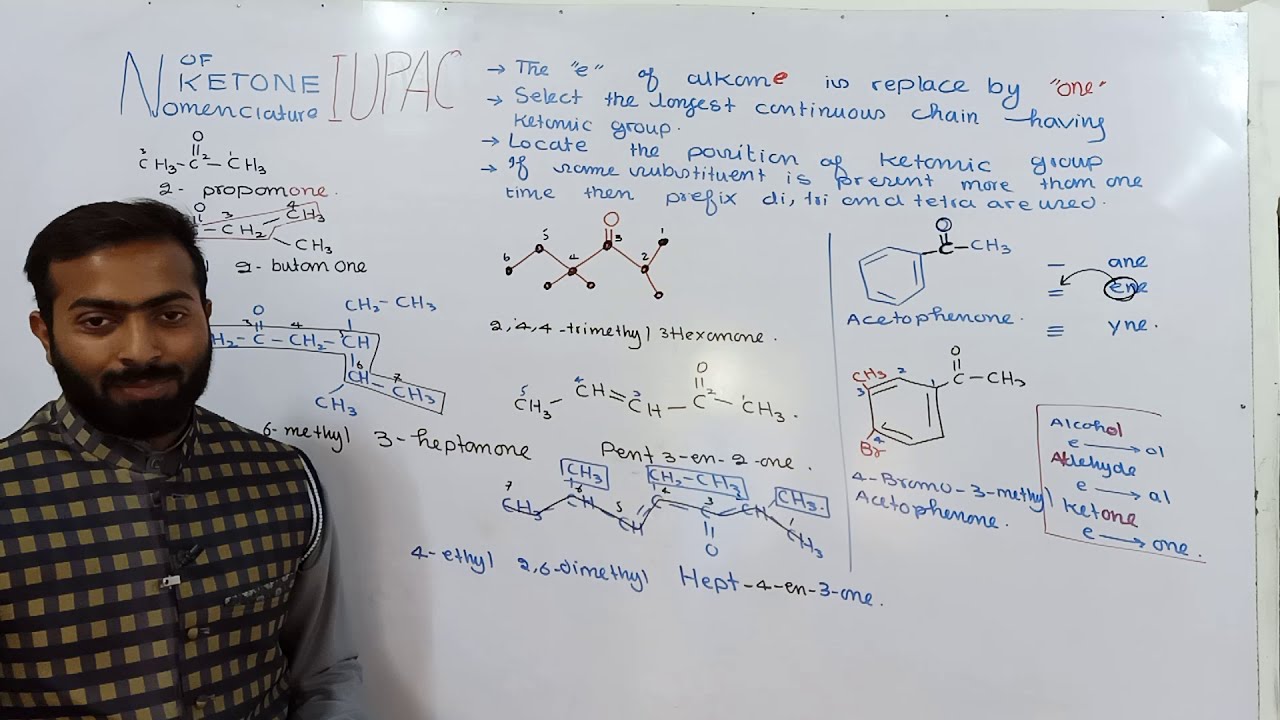 OF
KETONE
Nomenclature IUPAC
→ The "e" of alkane is replace by "one"
→ Select the longest continuous chain having
Ketonic group.
→ Locate the position of Ketonic group
→ If same substituent is present more than one
time then prefix di, tri and tetra are used.
O
3 CH3-C2-1CH3
2- propanone.
O
3 4
-CH2 CH3
CH3
2- butanone
CH2-CH3
O
3 4
H2-C-CH2-CH
6 7
CH-CH3
CH3
6-methyl 3-heptanone
O
6 5 4 3 2 1
2,4,4-trimethyl 3Hexanone.
O
5 4 3 2 1
CH3 CH=CH-C-CH3.
Pent 3-en-2-one.
CH3 CH2-CH3 CH3.
7 6 5 4 3
CH3 CH CH C C CH
O
1
CH3
4-ethyl 2,6-dimethyl Hept-4-en-3-one.
O
C-CH3
Acetophenone.
- ane
= ene
≡ yne.
O
CH3 2 1 C-CH3
3
4
Br
4-Bromo-3-methyl
Acetophenone.
Alcohol
e → ol
Aldehyde
e → al
Ketone
e → one.